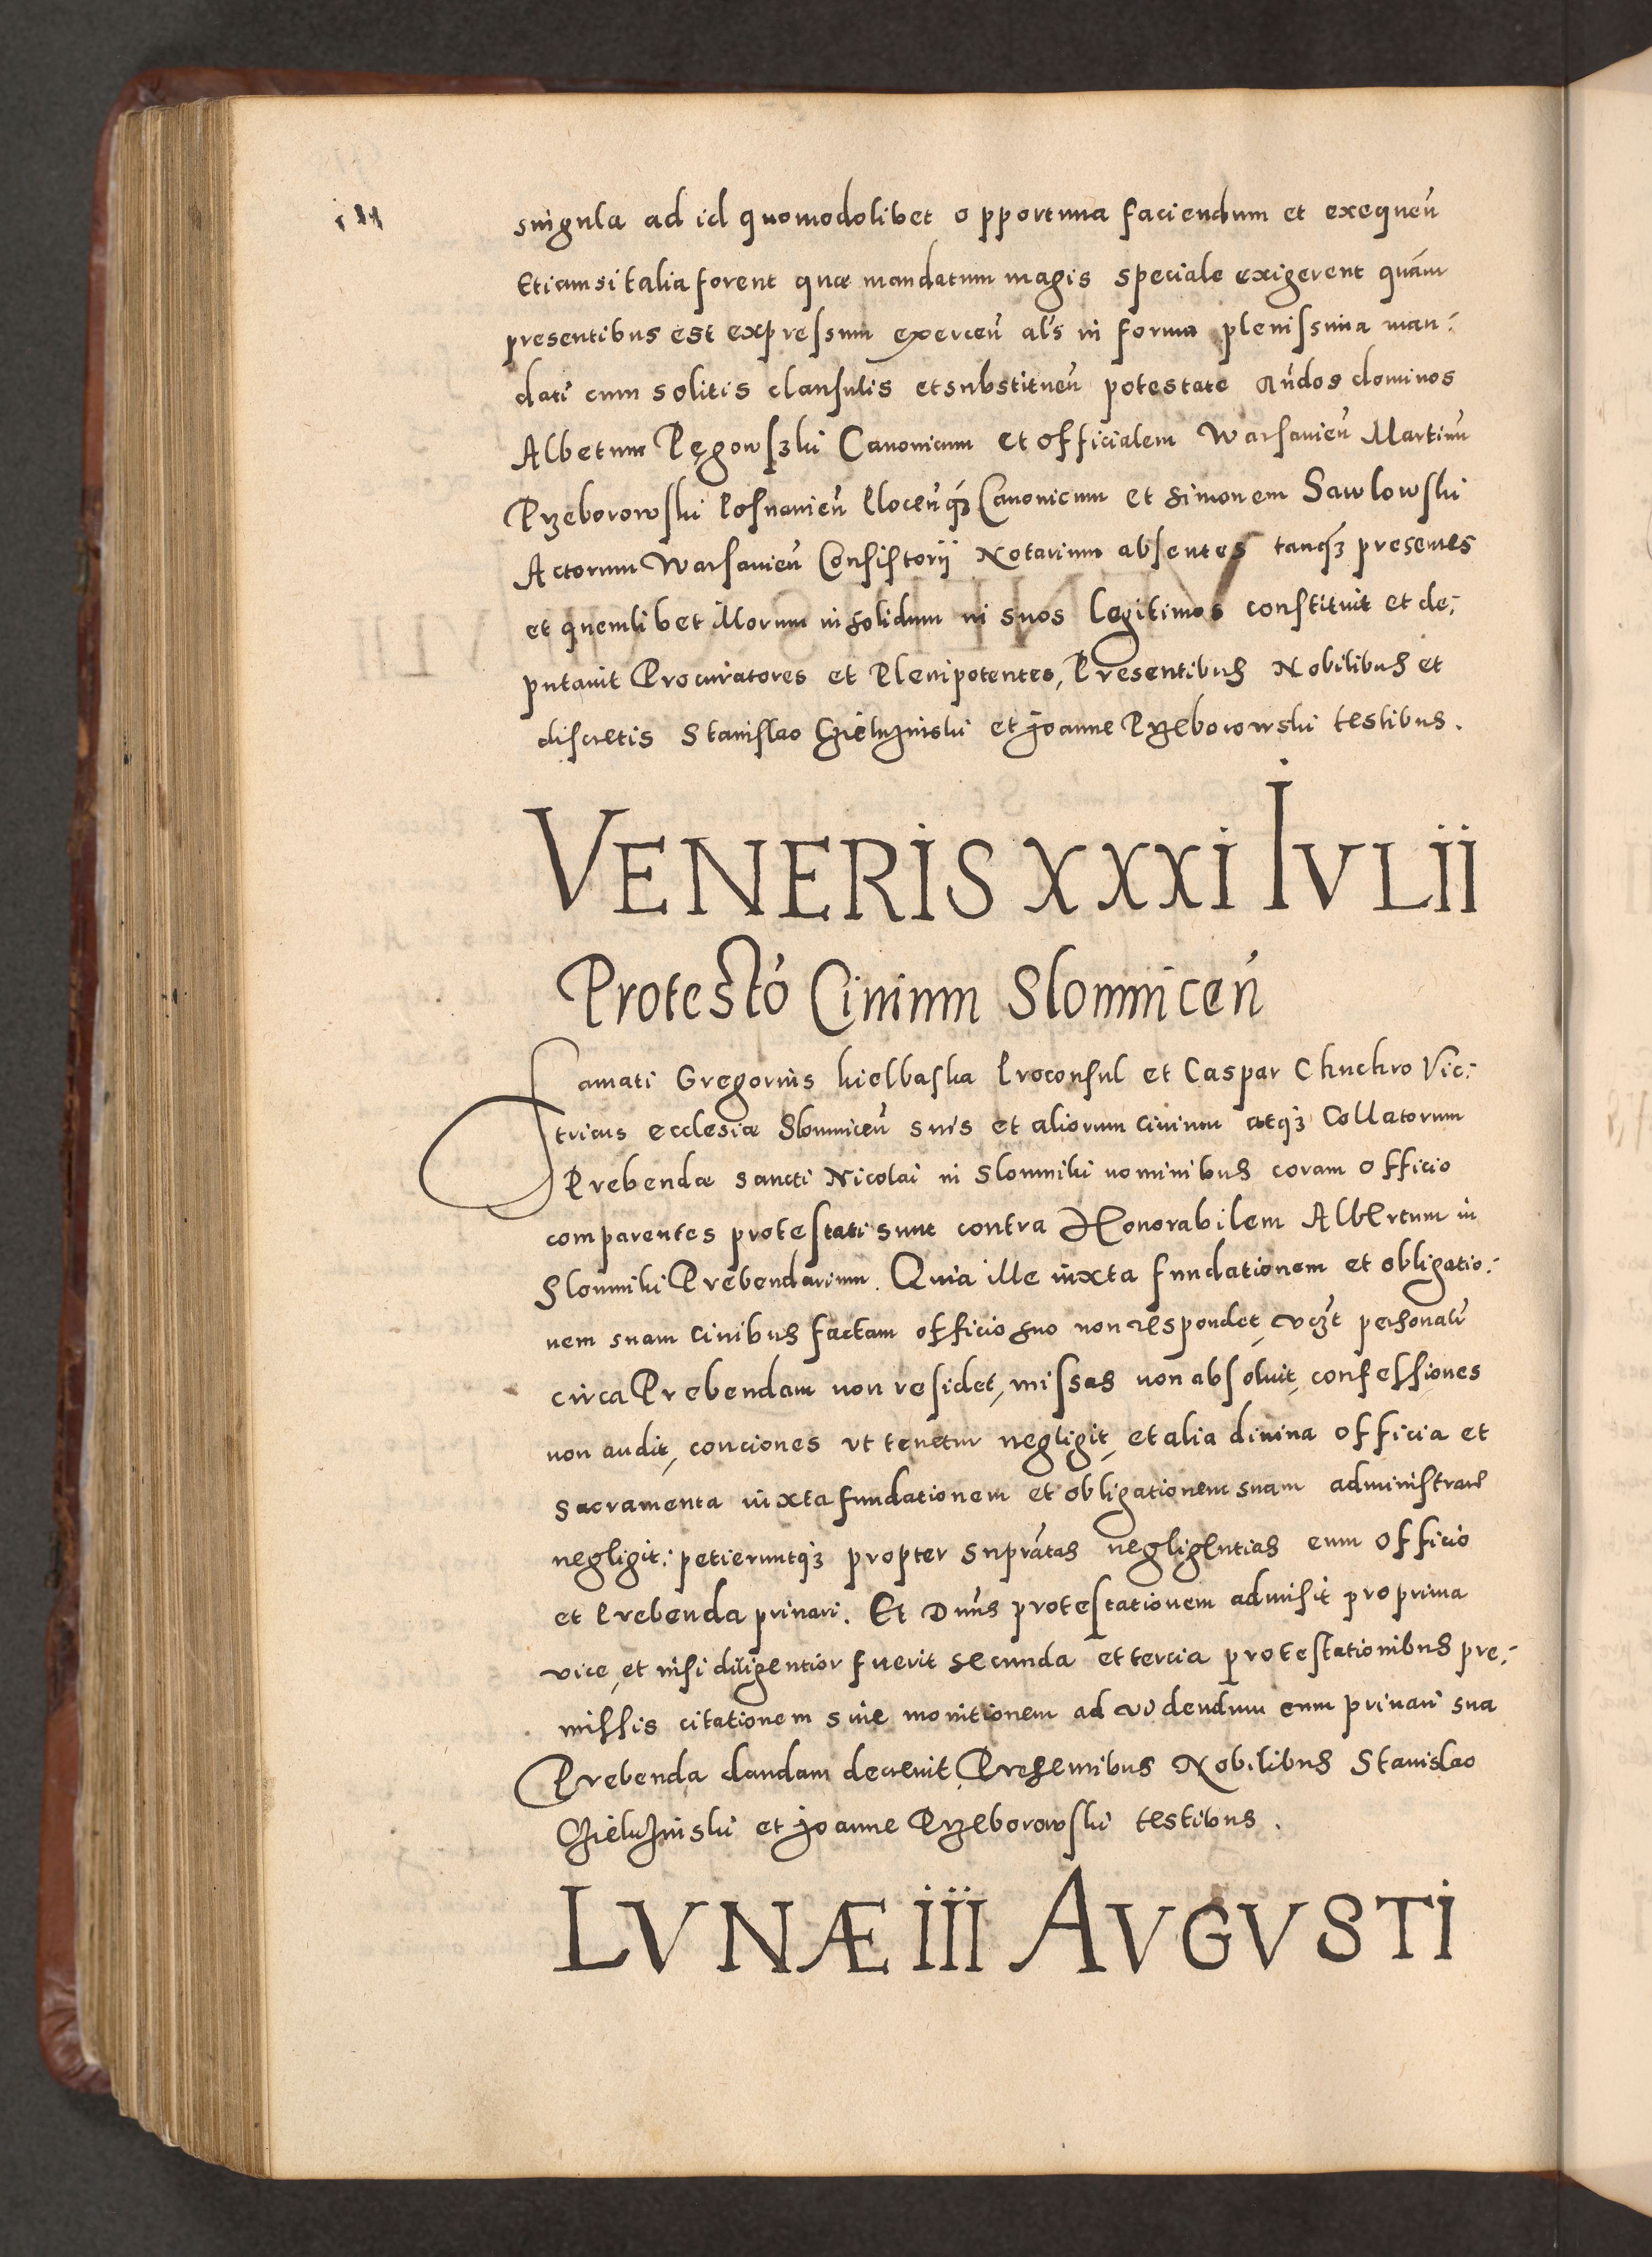 singula ad id quomodolibet opportuna faciendum et exequeń
Etiamsi talia forent quæ mandatum magis speciale exigerent quám
presentibus est expressum exerceń als in forma plenissima man:
dati cum solitis clausulis et substitueń potestate Ańdos dominos
Albetum Pęgowszki Canonicum et officialem Warsavień Martinu
Przeborowski Posnanień Ploceńq3 Canonicum et Simonem Sawlowski
Actorum Warsavień Consistorij Notarium absentes tanq3 presentes
et quemlibet illorum in solidum in suos legitimos constituit et de:
putavit Procuratores et Plenipotentes, Presentibus Nobilibus et
discretis Stanislao et Joanne Przeborowski testibus.
VENERIS XXXI IVLII
Protestó Civium Slomniceń
Famati Gregorius kielbaska Proconsul et Caspar Chuchro Vic:
tricus ecclesiæ Slomniceń suis et aliorum civium atq3 Collatorum
Prebendæ sancti Nicolai in Slomniki nominibus coram officio
comparentes protestati sunt contra Honorabilem Albertum in
Slomniki Prebendarium. Quia ille iuxta fundationem et obligatio:
nem suam civibus factam officio suo non respondet, vczt personalr
circa Prebendam non residet, missas non absolvit, confessiones
non audit, conciones vt tenetur negligit, et alia divina officia et
sacramenta iuxta fundationem et obligationem suam administrare
negligit: petieruntq3 propter suprátas negligentias eum officio
et Prebenda privari. Et Dńus protestationem admisit pro prima
vice, et nisi diligentior fuerit secunda et tercia protestationibus pre:
missis citationem sive monitionem ad videndum eum privari sua
Prebenda dandam decrevit, Presentibus Nobilibus Stanislao
et Joanne Przeborowski testibus.
LVNÆ III AVGVSTI